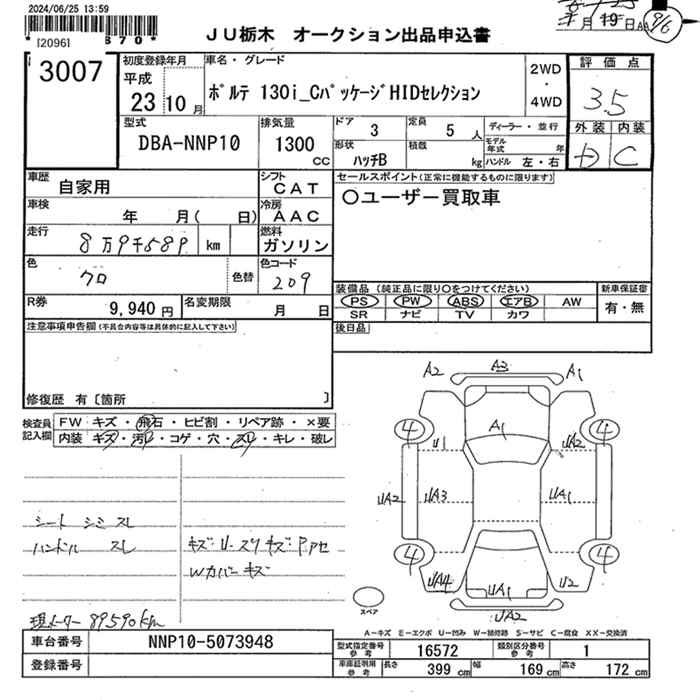 2024/06/25 13:59
120961
870
JU栃木 オークション出品申込書
月 19日 AA 9/6
3007
初度登録年月
平成
23 10 月
車名・グレード
ポルテ 130i_CパッケージHIDセレクション
2WD
・
4WD
評価点
3.5
外装 内装
D C
型式
DBA-NNP10
排気量
1300
CC
ドア 3
定員 5 人
形状 ハッチB
積載 kg
ディーラー・並行
モデル年式 年
ハンドル 左・右
車歴
自家用
シフト
CAT
車検
年 月( 日)
冷房
AAC
走行
8万9千589 km
燃料
ガソリン
色
クロ
色替
色コード
209
R券
9,940 円
名変期限
月 日
セールスポイント(正常に機能するものに限ります)
○ユーザー買取車
装備品(純正品に限り○をつけてください)
PS PW ABS エアB AW
SR ナビ TV カワ
新車保証書
有・無
後日品
注意事項申告欄(不具合内容等は具体的に記入して下さい)
修復歴 有〔箇所 〕
検査員記入欄
FW キズ・飛石・ヒビ割・リペア跡・×要
内装 キズ・汚レ・コゲ・穴・スレ・キレ・破レ
シート シミ スレ
ハンドル スレ
キズ・U・スリキズ・P.アセ
Wカバーキズ
現メーター 89590km
A2 A3 A1
A1
4 4
U1 UA2
UA2 UA3 UA1
4 4
UA4 UA1 U2
UA2
スペア
A-キズ E-エクボ U-凹み W-補修跡 S-サビ C-腐食 XX-交換済
車台番号
NNP10-5073948
登録番号
型式指定番号参考 16572
類別区分番号参考 1
車庫証明用参考 長さ 399 cm 幅 169 cm 高さ 172 cm